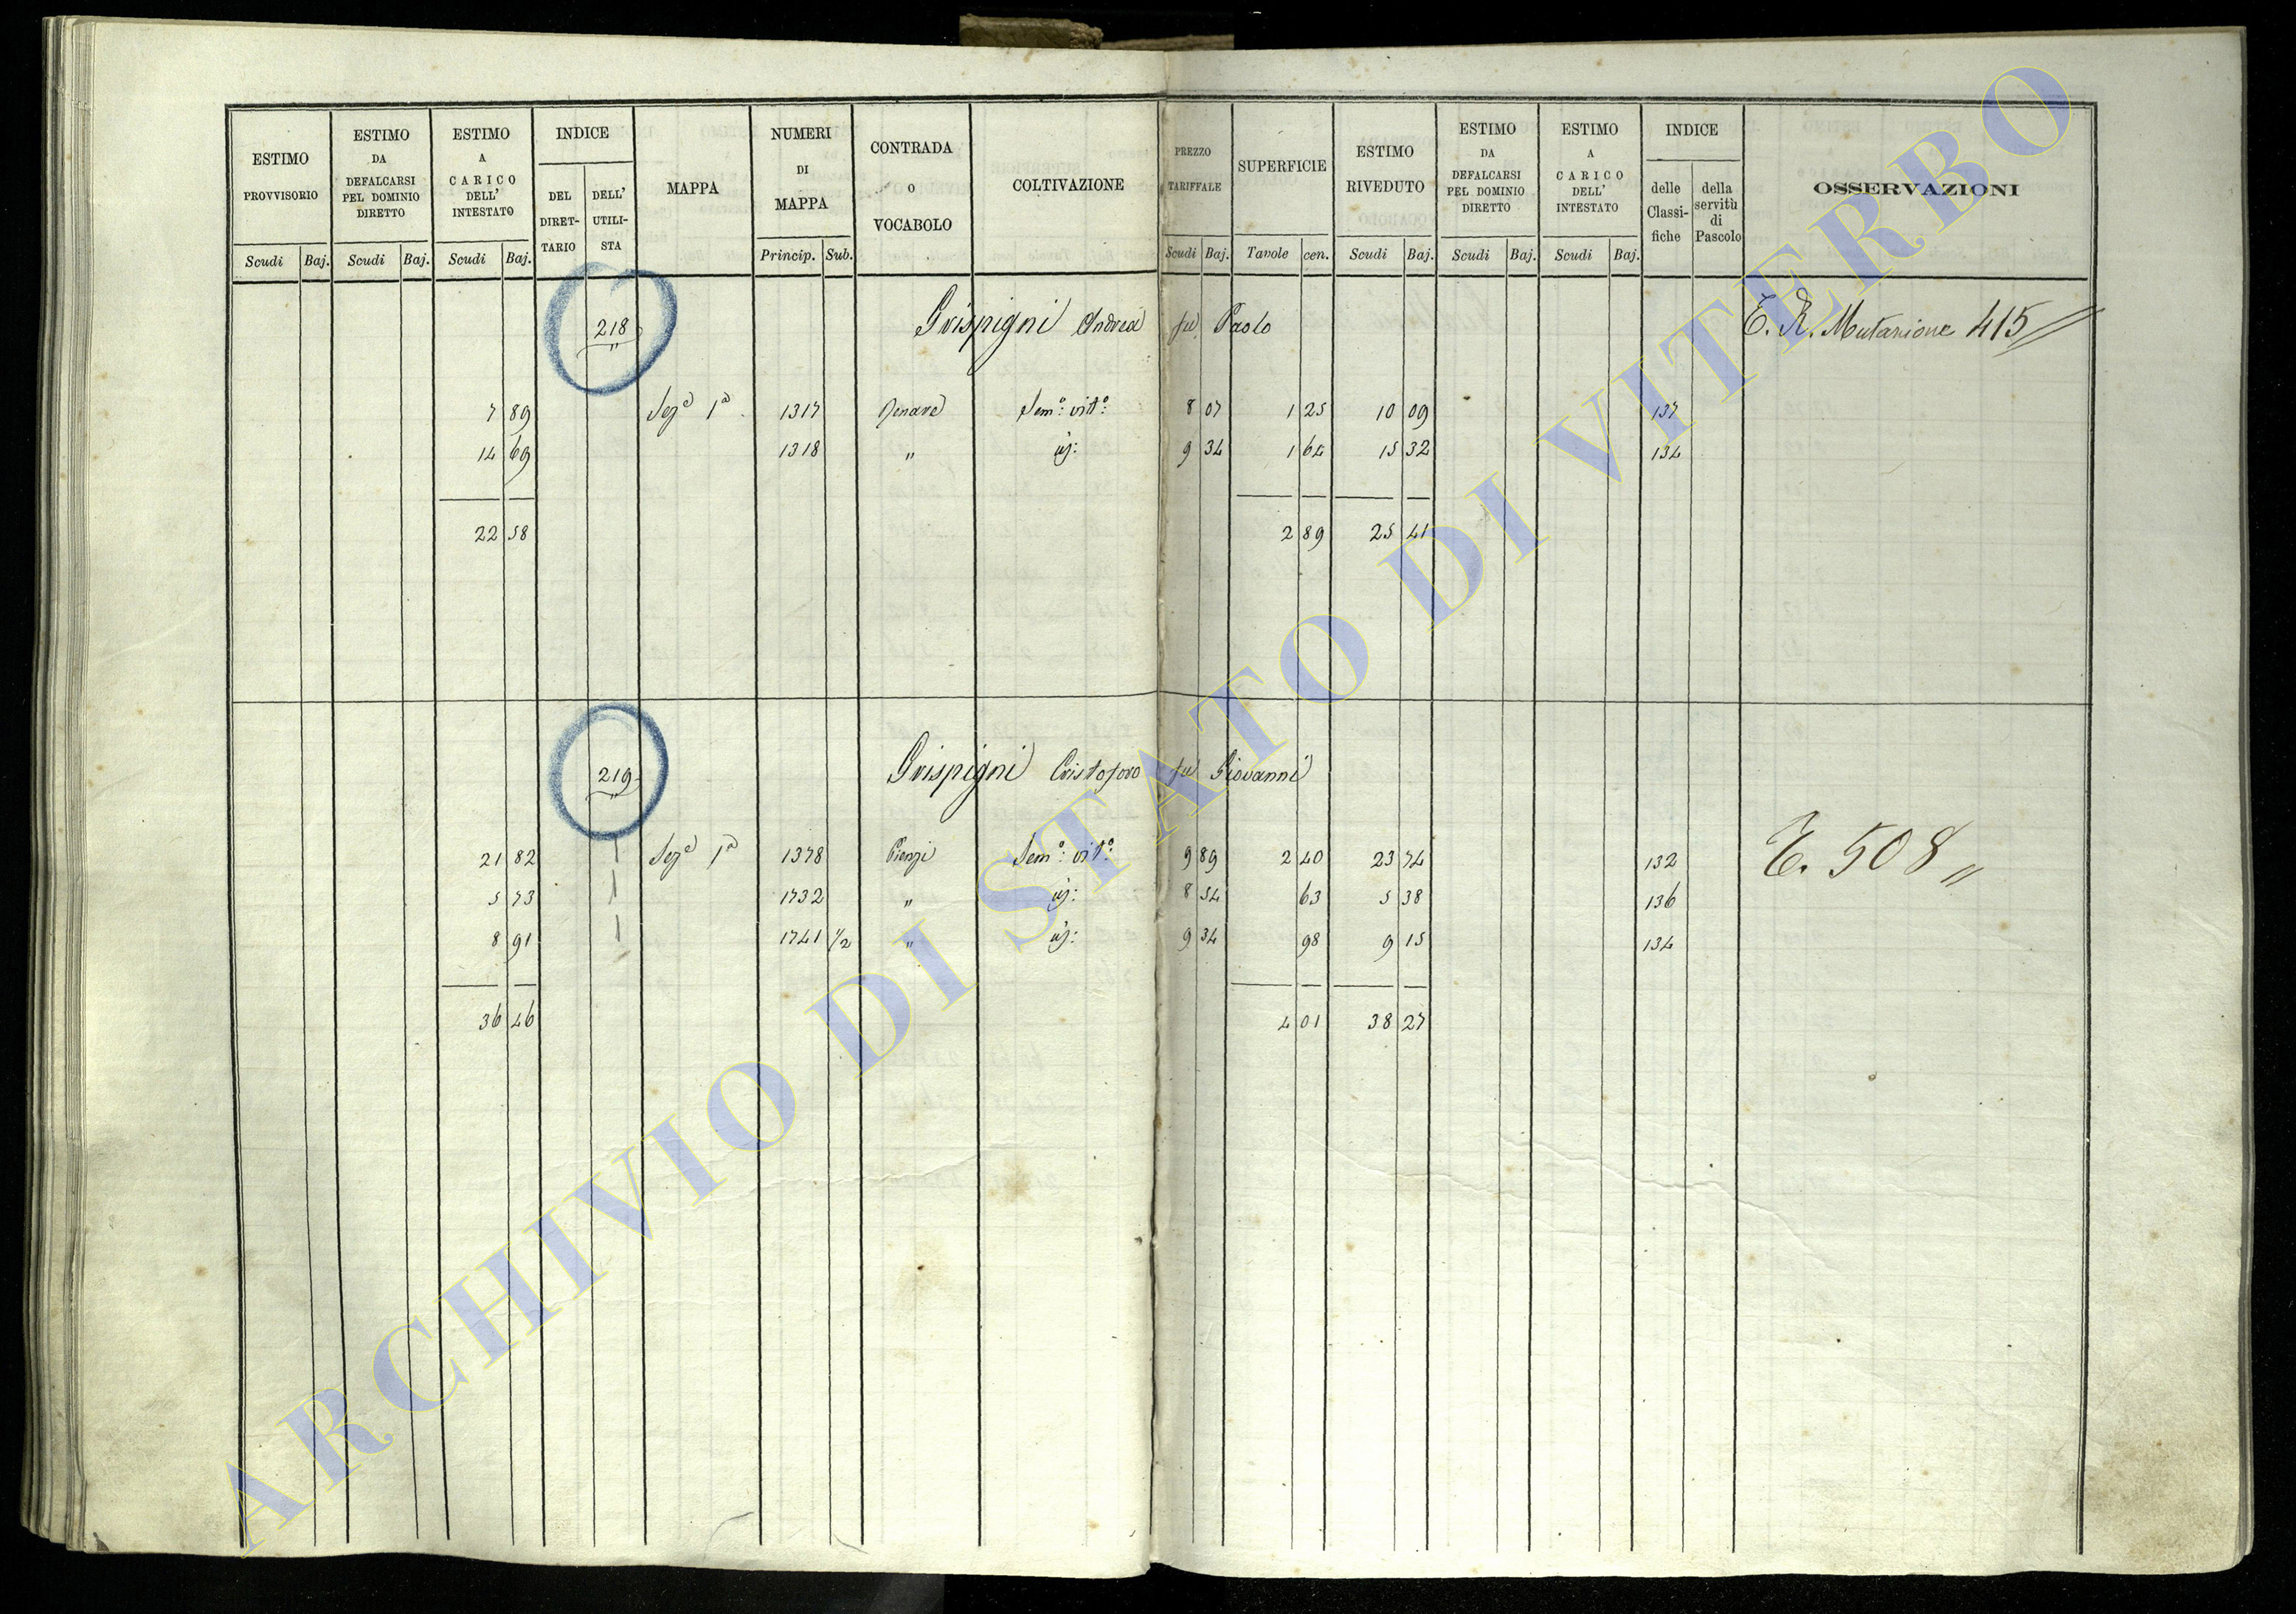 ESTIMO PROVVISORIO | ESTIMO DA DEFALCARSI PEL DOMINIO DIRETTO | ESTIMO A CARICO DELL' INTESTATO | INDICE | MAPPA | NUMERI DI MAPPA | CONTRADA O VOCABOLO | COLTIVAZIONE | PREZZO TARIFFALE | SUPERFICIE | ESTIMO RIVEDUTO | ESTIMO DA DEFALCARSI PEL DOMINIO DIRETTO | ESTIMO A CARICO DELL' INTESTATO | INDICE | OSSERVAZIONI
DEL DIRET-TARIO | DELL' UTILI-STA | delle Classi-fiche | della servitù di Pascolo
Scudi | Baj. | Scudi | Baj. | Scudi | Baj. | Princip. | Sub. | Scudi | Baj. | Tavole | cen. | Scudi | Baj. | Scudi | Baj. | Scudi | Baj.
218 Grispigni Andrea fu Paolo E. R. Mutazione 415
7 89 Sezᵉ 1ª 1317 Semº: vitº: 8 07 1 25 10 09 137
14 69 1318 " 9 34 1 64 15 32 134
22 58 2 89 25 41
219 Grispigni Cristoforo fu Giovanni
21 82 Sezᵉ 1ª 1378 Semº: vitº: 9 89 2 40 23 74 132 E. 508 "
5 73 1732 " 8 54 63 5 38 136
8 91 1741 1/2 " 9 34 98 9 15 134
36 46 4 01 38 27
ARCHIVIO DI STATO DI VITERBO